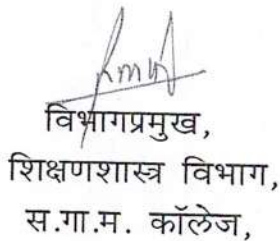 विभागप्रमुख,
शिक्षणशास्त्र विभाग,
स.गा.म. कॉलेज,